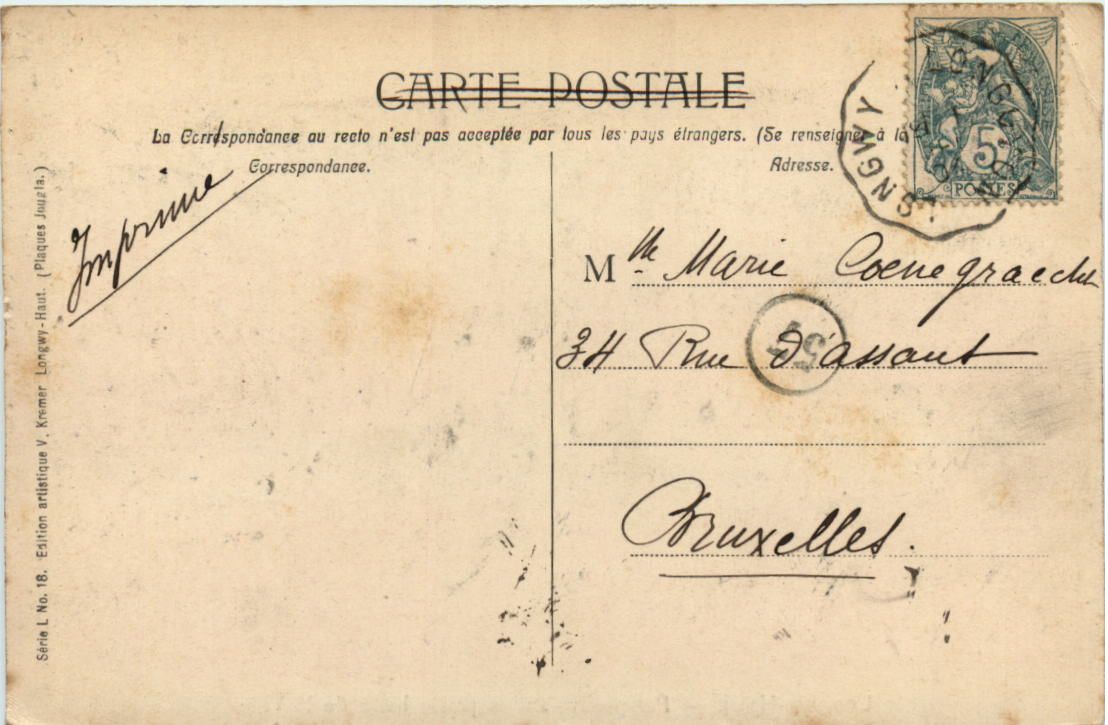 CARTE POSTALE
La Correspondance au recto n'est pas acceptée par tous les pays étrangers. (Se renseigner à la
Correspondance.
Adresse.
Imprimé
Mlle Marie
34 Rue d'assaut
Bruxelles.
LONGWY
5c
POSTES
Série L No. 18. Edition artistique V. Kremer Longwy-Haut. (Plaques Jougla.)